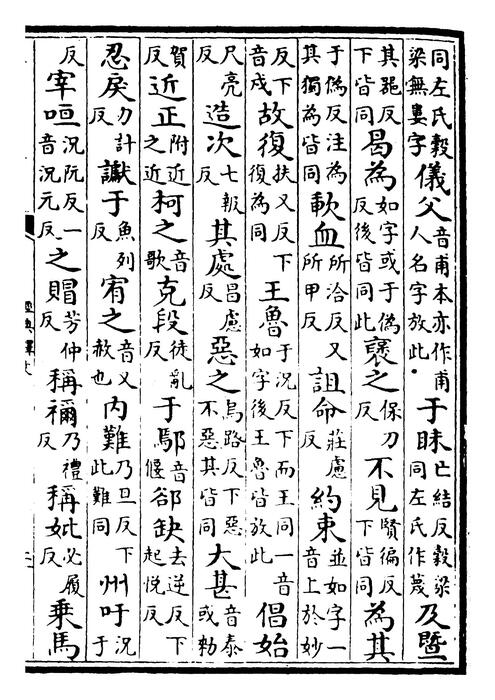 同左氏穀梁無婁字儀父音甫本亦作甫人名字放此于眜亡結反穀梁同左氏作蔑及暨
其器反下皆同曷為如字或于偽反後皆同此襃之保刀反不見賢徧反下皆同為其
于偽反注為其獨為皆同軟血所洽反又所甲反詛命莊慮反約束並如字一音上於妙
反下音戍故復扶又反下復為同王魯于況反下而王同一音如字後王魯皆放此倡始
尺亮反造次七報反其處昌慮反惡之烏路反下惡不惡其皆同大甚音泰或勑
賀反近正附近之近柯之音歌克段徒亂反于鄢音偃郤缺去逆反下起悅反
忍戾力計反讞于魚列反宥之音又赦也內難乃旦反下此難同州吁況于
反宰咺況阮反一音況元反之賵芳仲反稱禰乃禮反稱妣必履反乘馬